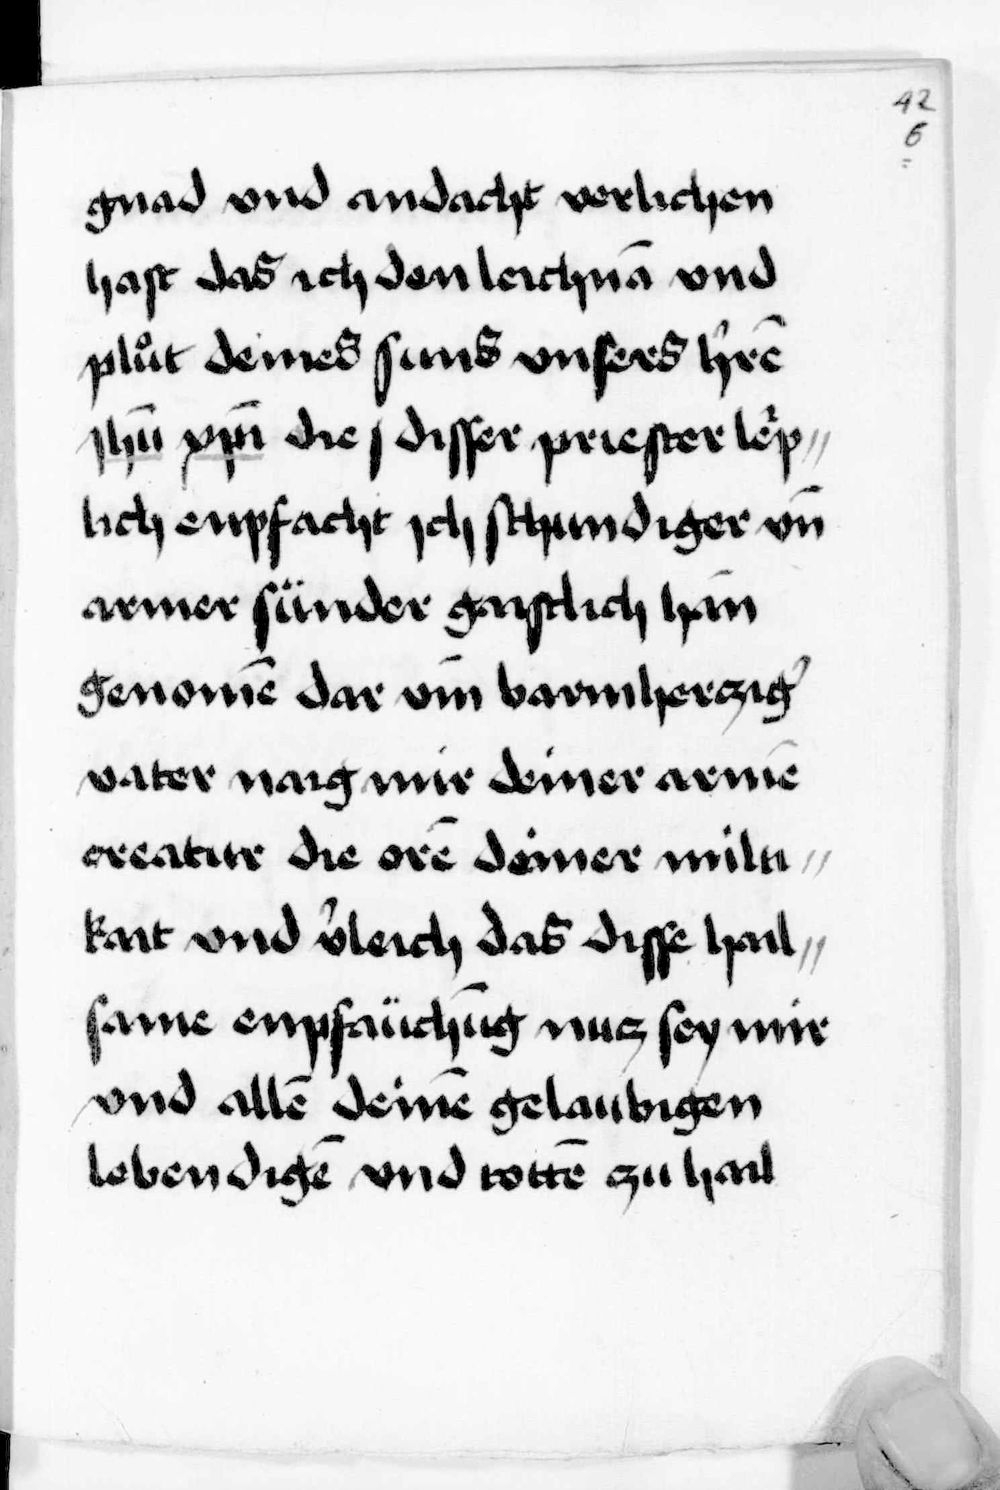 42
6
gnad vnd andacht verlichen
hast das ich den leichnā vnd
plůt deines suns vnsers h̓rē
jhū xp̄i die j disser priester le̓p//
lich enpfacht ich schundiger vn̄
armer sünder gaistlich han̄
genomē dar vm̄ barmherczig̓
vater naig mir deiner armē
creatur die orē deiner milti//
kait vnd v̓leich das disse hail//
same enpfaüchūg nucz sey mir
vnd allē deinē gelaubigen
lebendigē vnd tottē zu hail